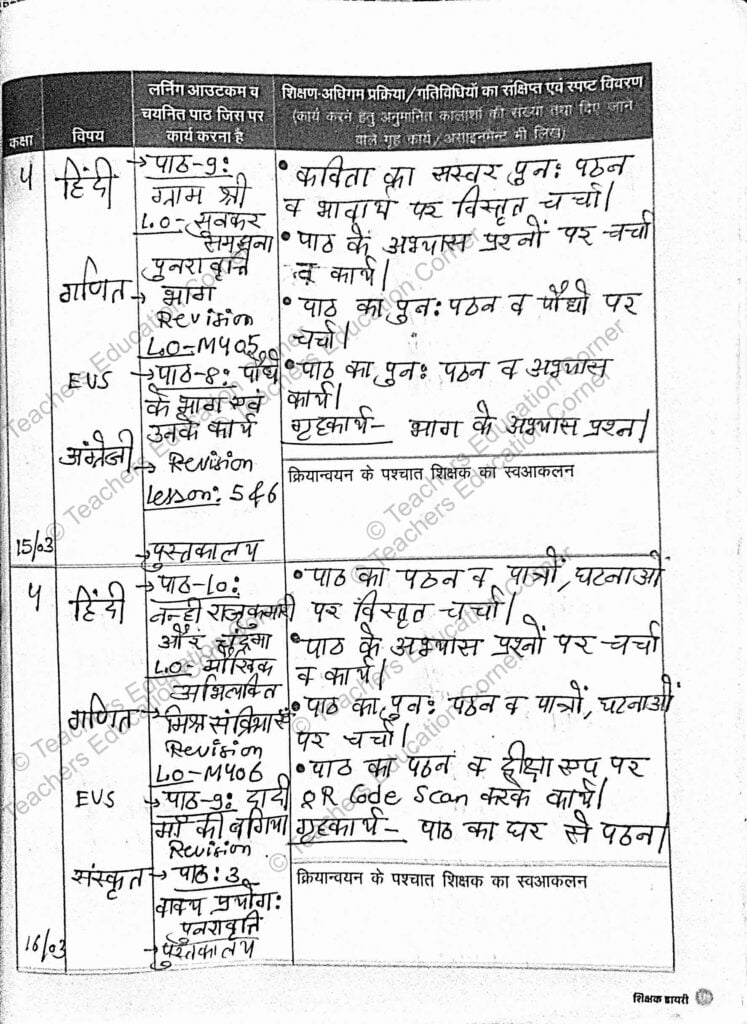 कक्षा
विषय
लर्निंग आउटकम व
चयनित पाठ जिस पर
कार्य करना है
शिक्षण-अधिगम प्रक्रिया/गतिविधियों का संक्षिप्त एवं स्पष्ट विवरण
(कार्य करने हेतु अनुमानित कालाशों की संख्या तथा दिए जाने
वाले गृह कार्य/असाइनमेन्ट भी लिखें)
4
हिंदी
→पाठ-9:
ग्राम श्री
L.O- सुनकर
समझना
पुनरावृत्ति
गणित→
भाग
Revision
L.O-M405
EVS
→पाठ-8: पौधे
के भाग एवं
उनके कार्य
अंग्रेजी→
Revision
Lesson: 5 & 6
→पुस्तकालय
15/03
• कविता का सस्वर पुनः पठन
व भावार्थ पर विस्तृत चर्चा।
• पाठ के अभ्यास प्रश्नों पर चर्चा
व कार्य।
• पाठ का पुनः पठन व पौधों पर
चर्चा।
• पाठ का पुनः पठन व अभ्यास
कार्य।
गृहकार्य- भाग के अभ्यास प्रश्न।
क्रियान्वयन के पश्चात शिक्षक का स्वआकलन
4
हिंदी
→पाठ-10:
नन्ही राजकुमारी
और चंद्रमा
L.O- मौखिक
अभिव्यक्ति
गणित→
मिश्र संक्रियाएं
Revision
L.O-M406
EVS
→पाठ-9: दादी
माँ की बगिया
Revision
संस्कृत→
पाठ: 3
वाक्य प्रयोग:
पुनरावृत्ति
→पुस्तकालय
16/03
• पाठ का पठन व पात्रों, घटनाओं
पर विस्तृत चर्चा।
• पाठ के अभ्यास प्रश्नों पर चर्चा
व कार्य।
• पाठ का पुनः पठन व पात्रों, घटनाओं
पर चर्चा।
• पाठ का पठन व दीक्षा एप पर
QR Code Scan करके कार्य।
गृहकार्य- पाठ का घर से पठन।
क्रियान्वयन के पश्चात शिक्षक का स्वआकलन
शिक्षक डायरी
© Teachers Education Corner
© Teachers Education Corner
© Teachers Education Corner
© Teachers Education Corner